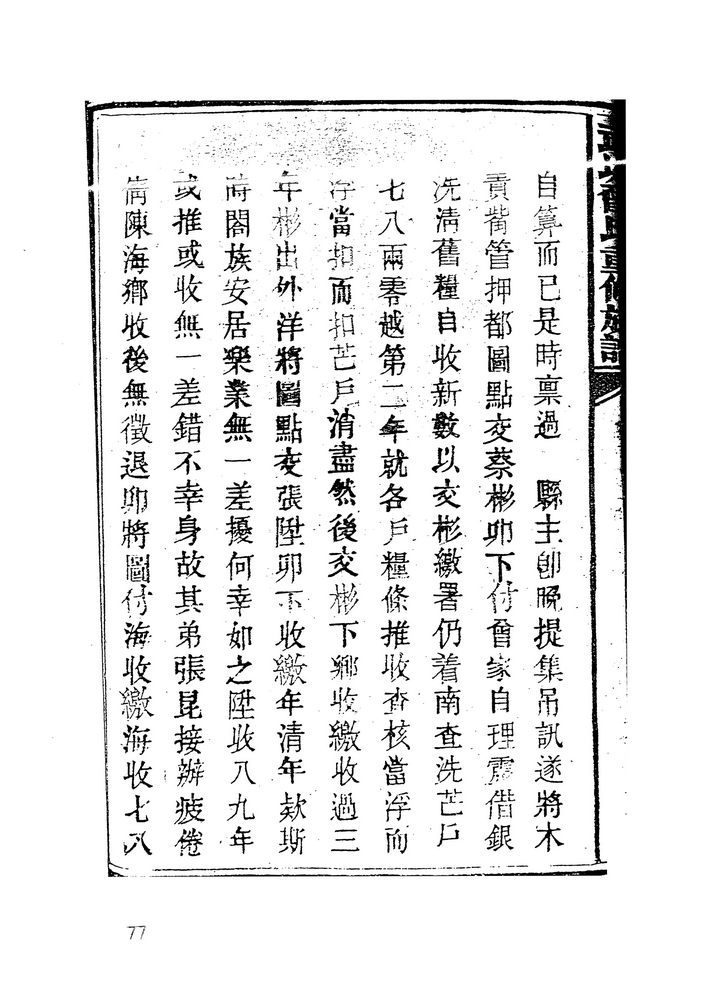 自算而已是時禀過　縣主卽晚提集吊訊遂將木
責衛管押都圖點交蔡彬卯下付曾家自理震借銀
洗清舊糧自收新數以交彬繳署仍着南查洗芒戶
七八兩零越第二年就各戶糧條推收查核當浮而
浮當扣而扣芒戶消盡然後交彬下鄉收繳收過三
年彬出外洋將圖點交張陞卯下收繳年清年欵斯
時閤族安居樂業無一差擾何幸如之陞收八九年
或推或收無一差錯不幸身故其弟張昆接辦疲倦
倩陳海鄉收後無徵退卯將圖付海收繳海收七八
曾氏重修族譜
77